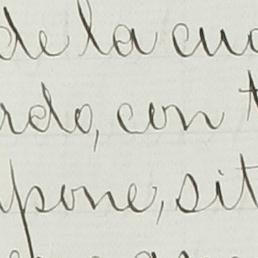 de la cua
rdo, con t
pone, sit